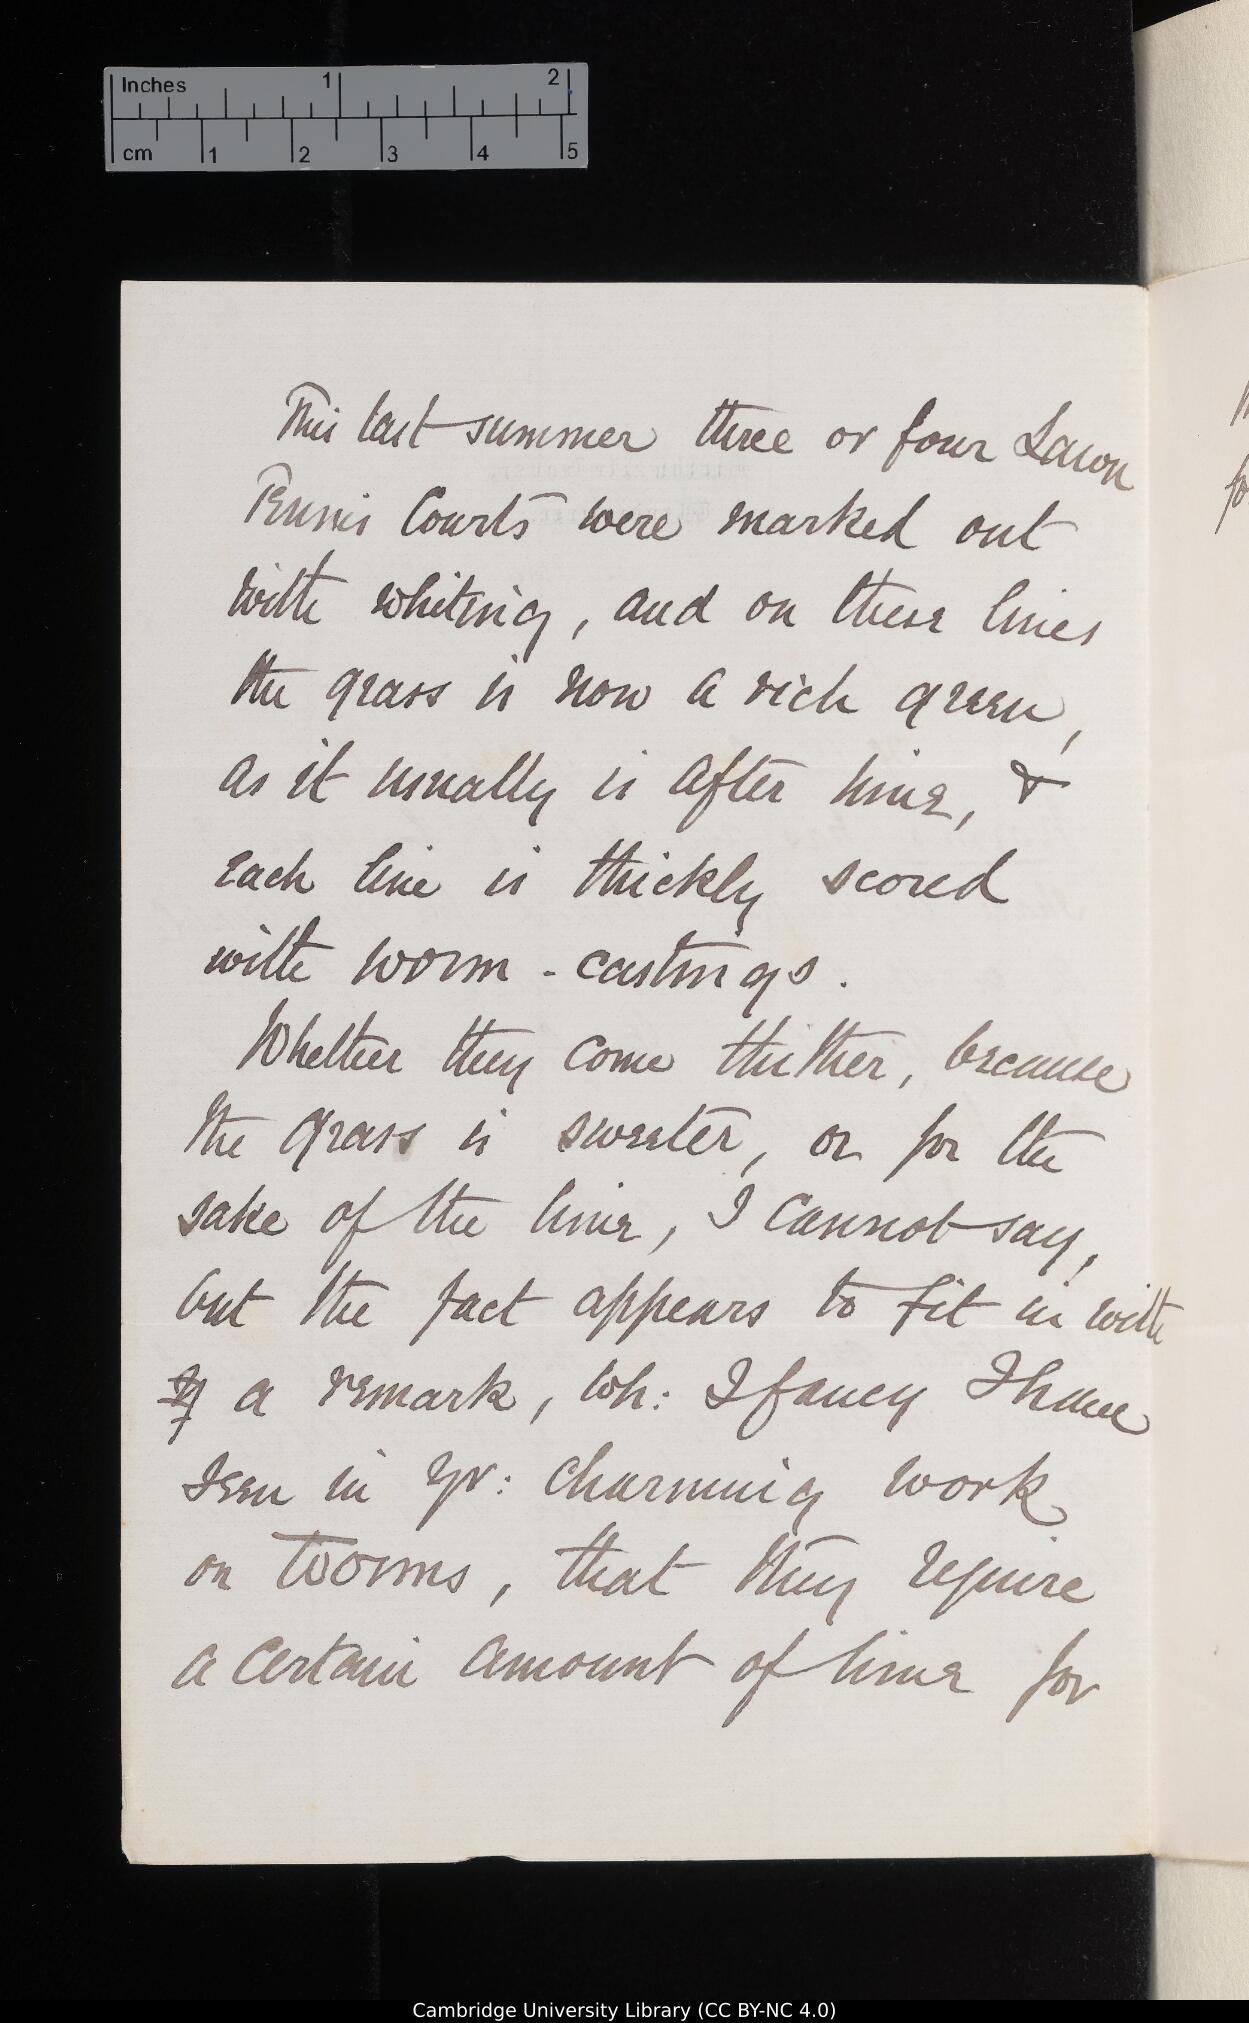 Inches 1 2
cm 1 2 3 4 5
This last summer three or four Lawn
Tennis Courts were marked out
with whiting, and on these lines
the grass is now a rich green,
as it usually is after lime, &
each line is thickly scored
with worm-castings.
Whether they come thither, because
the grass is sweeter, or for the
sake of the lime, I cannot say,
but the fact appears to fit in with
a remark, wh: I fancy I have
seen in yr: charming work
on Worms, that they require
a certain amount of lime for
Cambridge University Library (CC BY-NC 4.0)